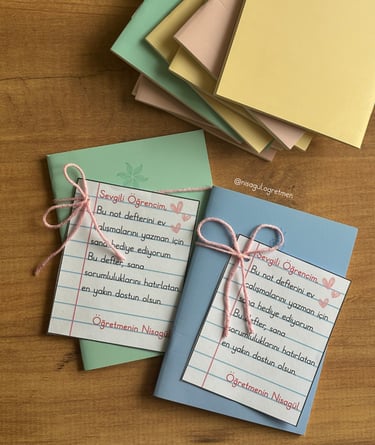 @nisagul.ogretmen
Sevgili Öğrencim,
Bu not defterini ev
çalışmalarını yazman için
sana hediye ediyorum.
Bu defter, sana
sorumluluklarını hatırlatan
en yakın dostun olsun.
Öğretmenin Nisagül
Sevgili Öğrencim,
Bu not defterini ev
çalışmalarını yazman için
sana hediye ediyorum.
Bu defter, sana
sorumluluklarını hatırlatan
en yakın dostun olsun.
Öğretmenin Nisagül